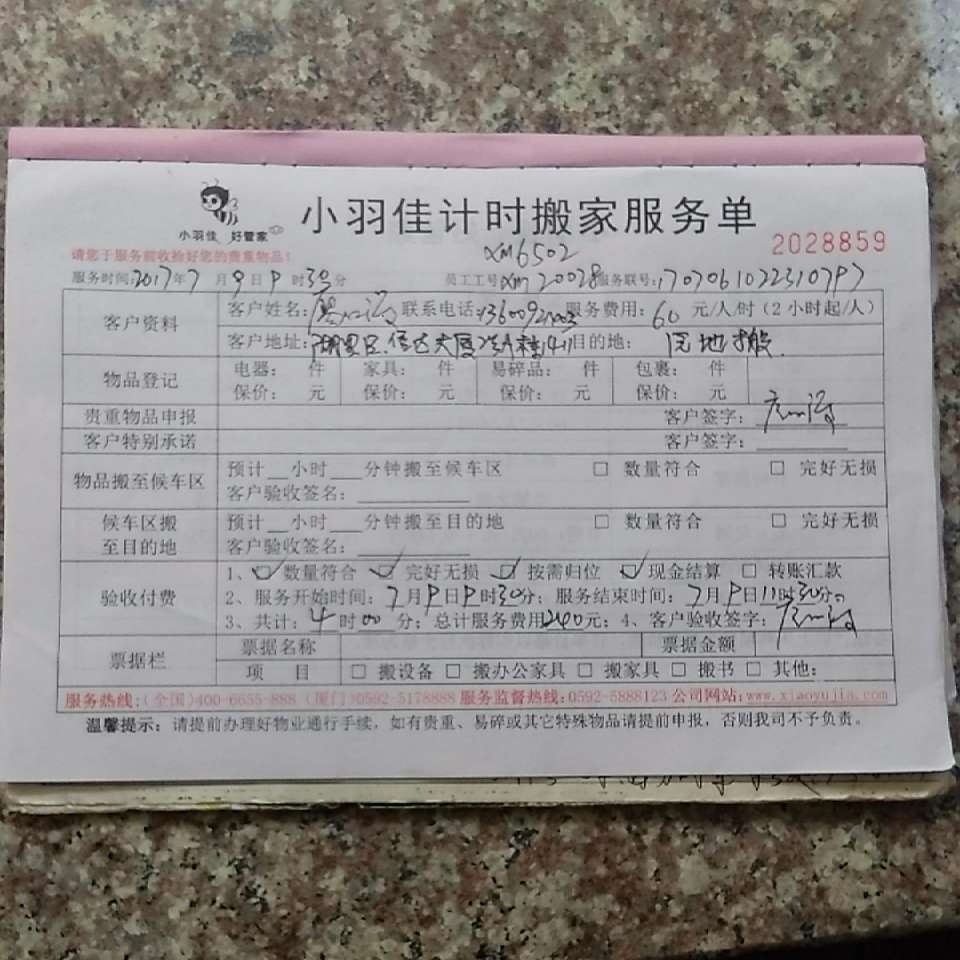 小羽佳计时搬家服务单
小羽佳 好管家
XM6502
2028859
请您于服务前收验好您的贵重物品!
服务时间:2017年7月9日9时30分 员工工号:XM20028 服务联号:
客户资料 客户姓名: 联系电话: 服务费用:60元/人/时(2小时起/人)
客户地址: 目的地:
物品登记 电器: 件 家具: 件 易碎品: 件 包裹: 件
保价: 元 保价: 元 保价: 元 保价: 元
贵重物品申报 客户签字:
客户特别承诺 客户签字:
物品搬至候车区 预计__小时___分钟搬至候车区 □ 数量符合 □ 完好无损
客户验收签名:
候车区搬至目的地 预计__小时___分钟搬至目的地 □ 数量符合 □ 完好无损
客户验收签名:
验收付费 1、☑数量符合 ☑完好无损 ☑按需归位 ☑现金结算 □ 转账汇款
2、服务开始时间:7月9日9时30分;服务结束时间:7月9日11时30分。
3、共计:4时00分;总计服务费用240元;4、客户验收签字:
票据栏 票据名称 票据金额
项 目 □ 搬设备 □ 搬办公家具 □ 搬家具 □ 搬书 □ 其他:
服务热线:(全国)400-6655-888 (厦门)0592-5178888 服务监督热线:0592-5888123 公司网站:www.xiaoyujia.com
温馨提示:请提前办理好物业通行手续,如有贵重、易碎或其它特殊物品请提前申报,否则我司不予负责。